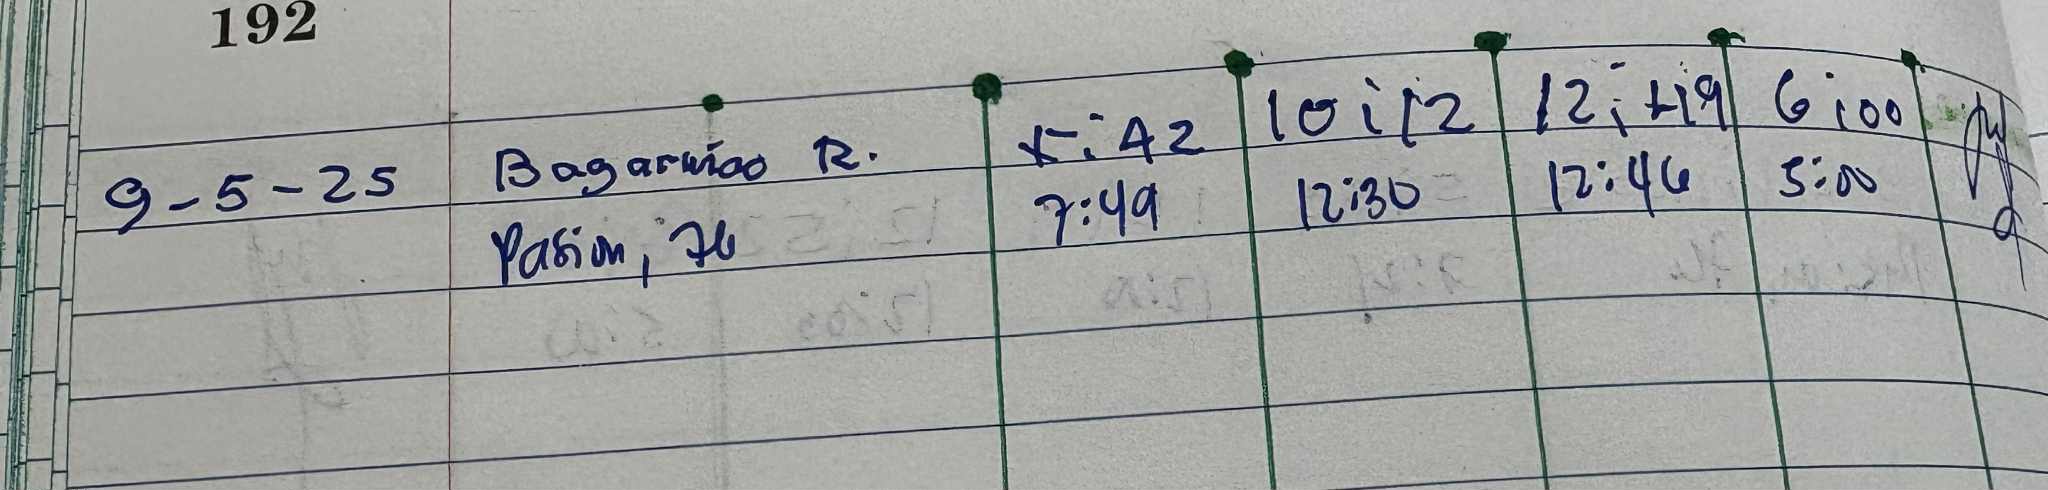 192
9-5-25 Bagarwiao R. 5:42 10:12 12:49 6:00
Pasion, 76 7:49 12:30 12:46 5:00